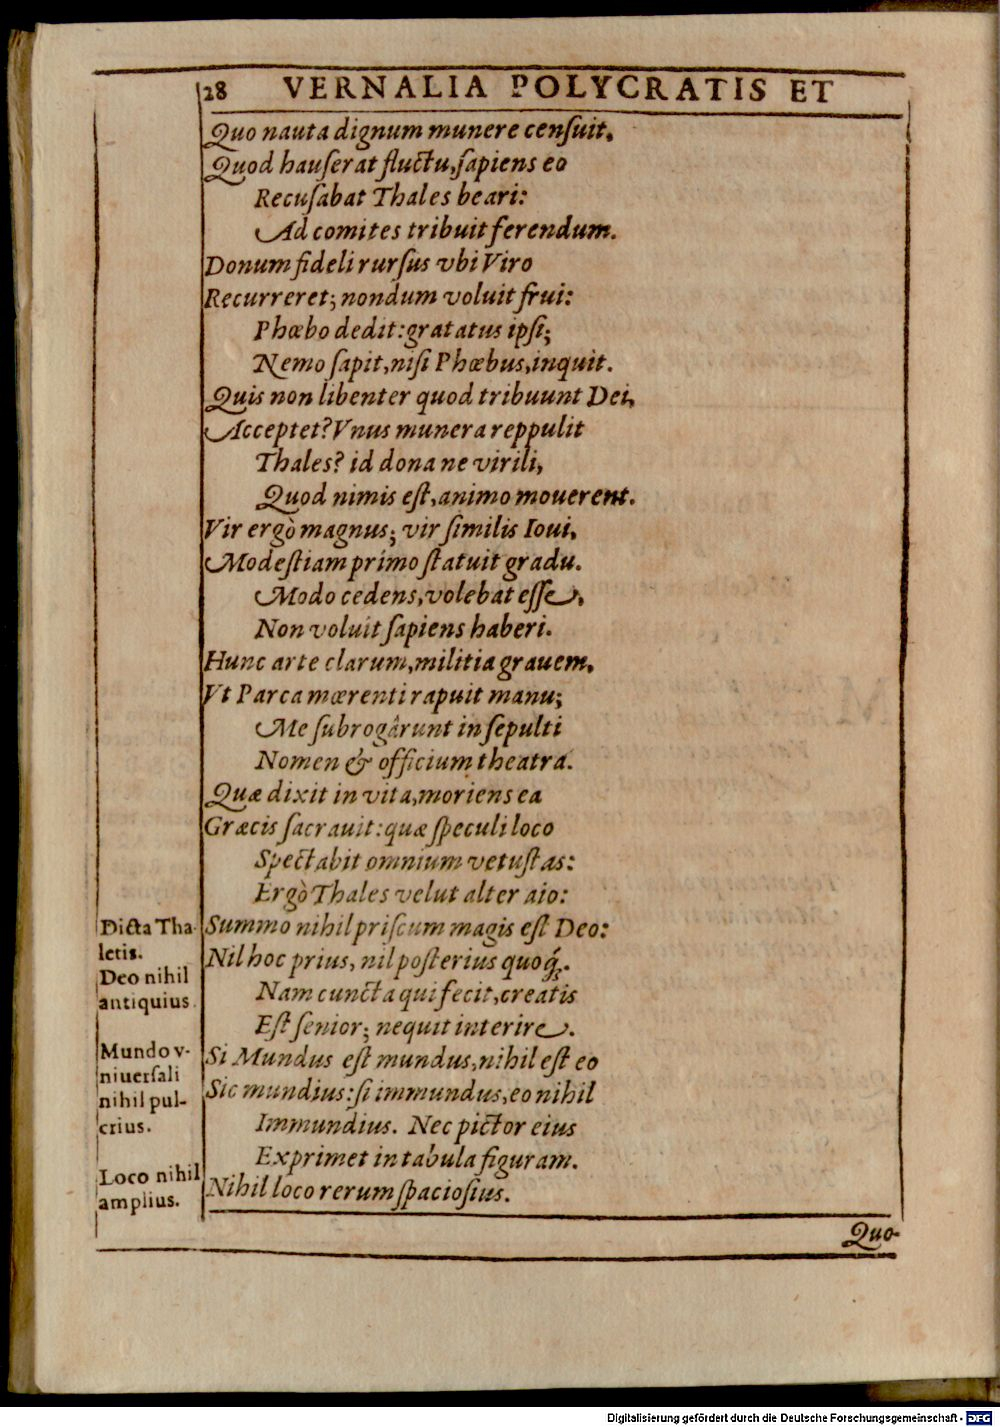 28 VERNALIA POLYCRATIS ET
Quo nauta dignum munere censuit,
Quod hauſerat fluctu, ſapiens eo
Recuſabat Thales beari:
Ad comites tribuit ferendum.
Donum fideli rurſus vbi Viro
Recurreret; nondum voluit frui:
Phœbo dedit: gratatus ipſi;
Nemo ſapit, niſi Phœbus, inquit.
Quis non libenter quod tribuunt Dei,
Acceptet? Vnus munera reppulit
Thales? id dona ne virili,
Quod nimis eſt, animo mouerent.
Vir ergò magnus; vir ſimilis Ioui,
Modeſtiam primo ſtatuit gradu.
Modo cedens, volebat eſſe,
Non voluit ſapiens haberi.
Hunc arte clarum, militia grauem,
Vt Parca mœrenti rapuit manu;
Me ſubrogârunt in ſepulti
Nomen & officium theatra.
Quæ dixit in vita, moriens ea
Græcis ſacrauit: quæ ſpeculi loco
Spectabit omnium vetuſtas:
Ergò Thales velut alter aio:
Dicta Tha-
letis.
Summo nihil priſcum magis eſt Deo:
Nil hoc prius, nil poſterius quoq́;.
Deo nihil
antiquius.
Nam cuncta qui fecit, creatis
Eſt ſenior; nequit interire.
Mundo v-
niuerſali
nihil pul-
crius.
Si Mundus eſt mundus, nihil eſt eo
Sic mundius: ſi immundus, eo nihil
Immundius. Nec pictor eius
Exprimet in tabula figuram.
Loco nihil
amplius.
Nihil loco rerum ſpacioſius.
Quo-
Digitalisierung gefördert durch die Deutsche Forschungsgemeinschaft - DFG